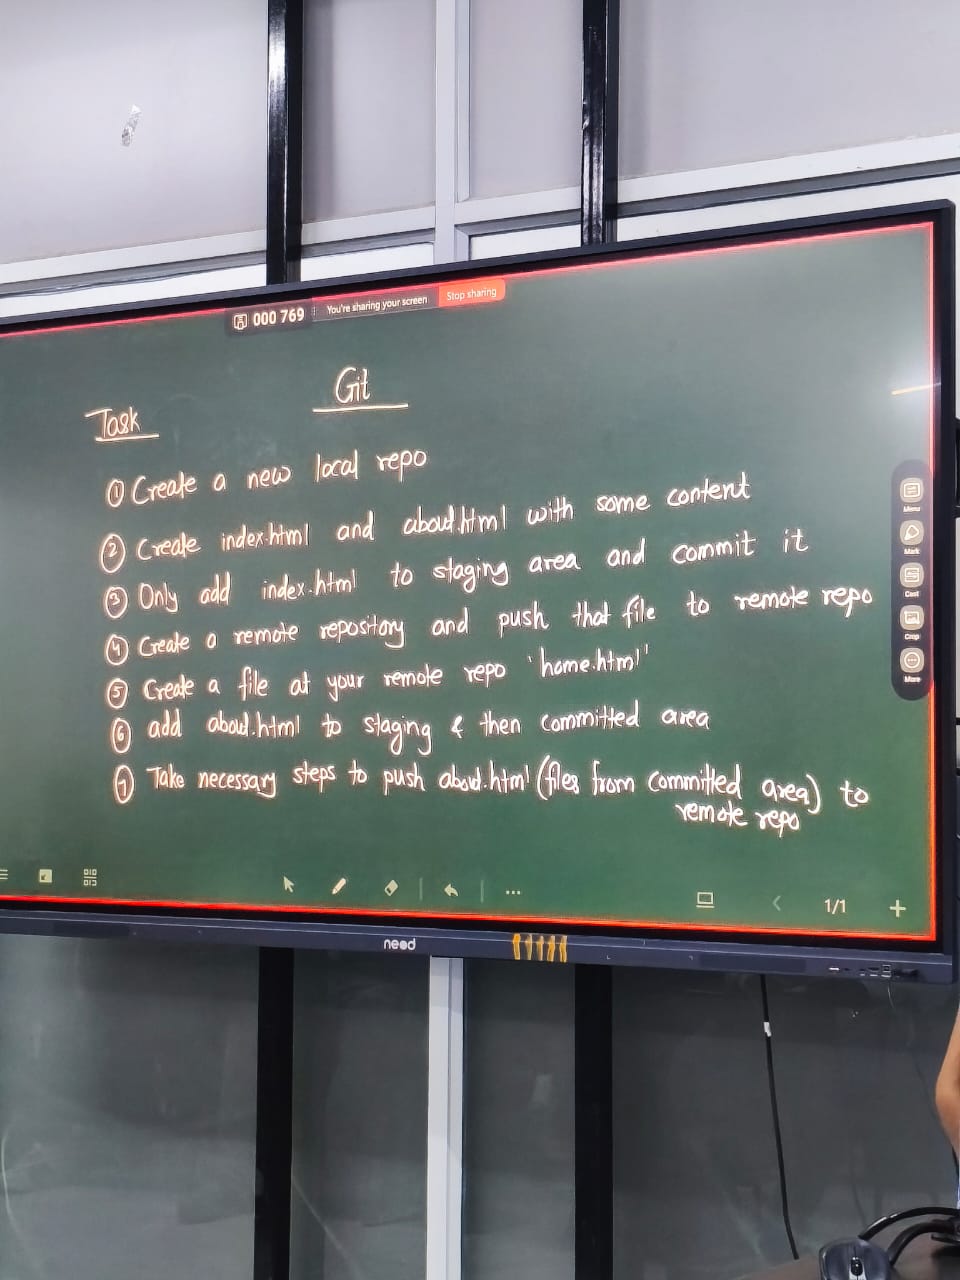 000 769
You're sharing your screen
Stop sharing
Git
Task
① Create a new local repo
② Create index.html and about.html with some content
③ Only add index.html to staging area and commit it
④ Create a remote repository and push that file to remote repo
⑤ Create a file at your remote repo 'home.html'
⑥ add about.html to staging & then committed area
⑦ Take necessary steps to push about.html (files from committed area) to
remote repo
Menu
Mark
Cast
Crop
More
1/1
neod